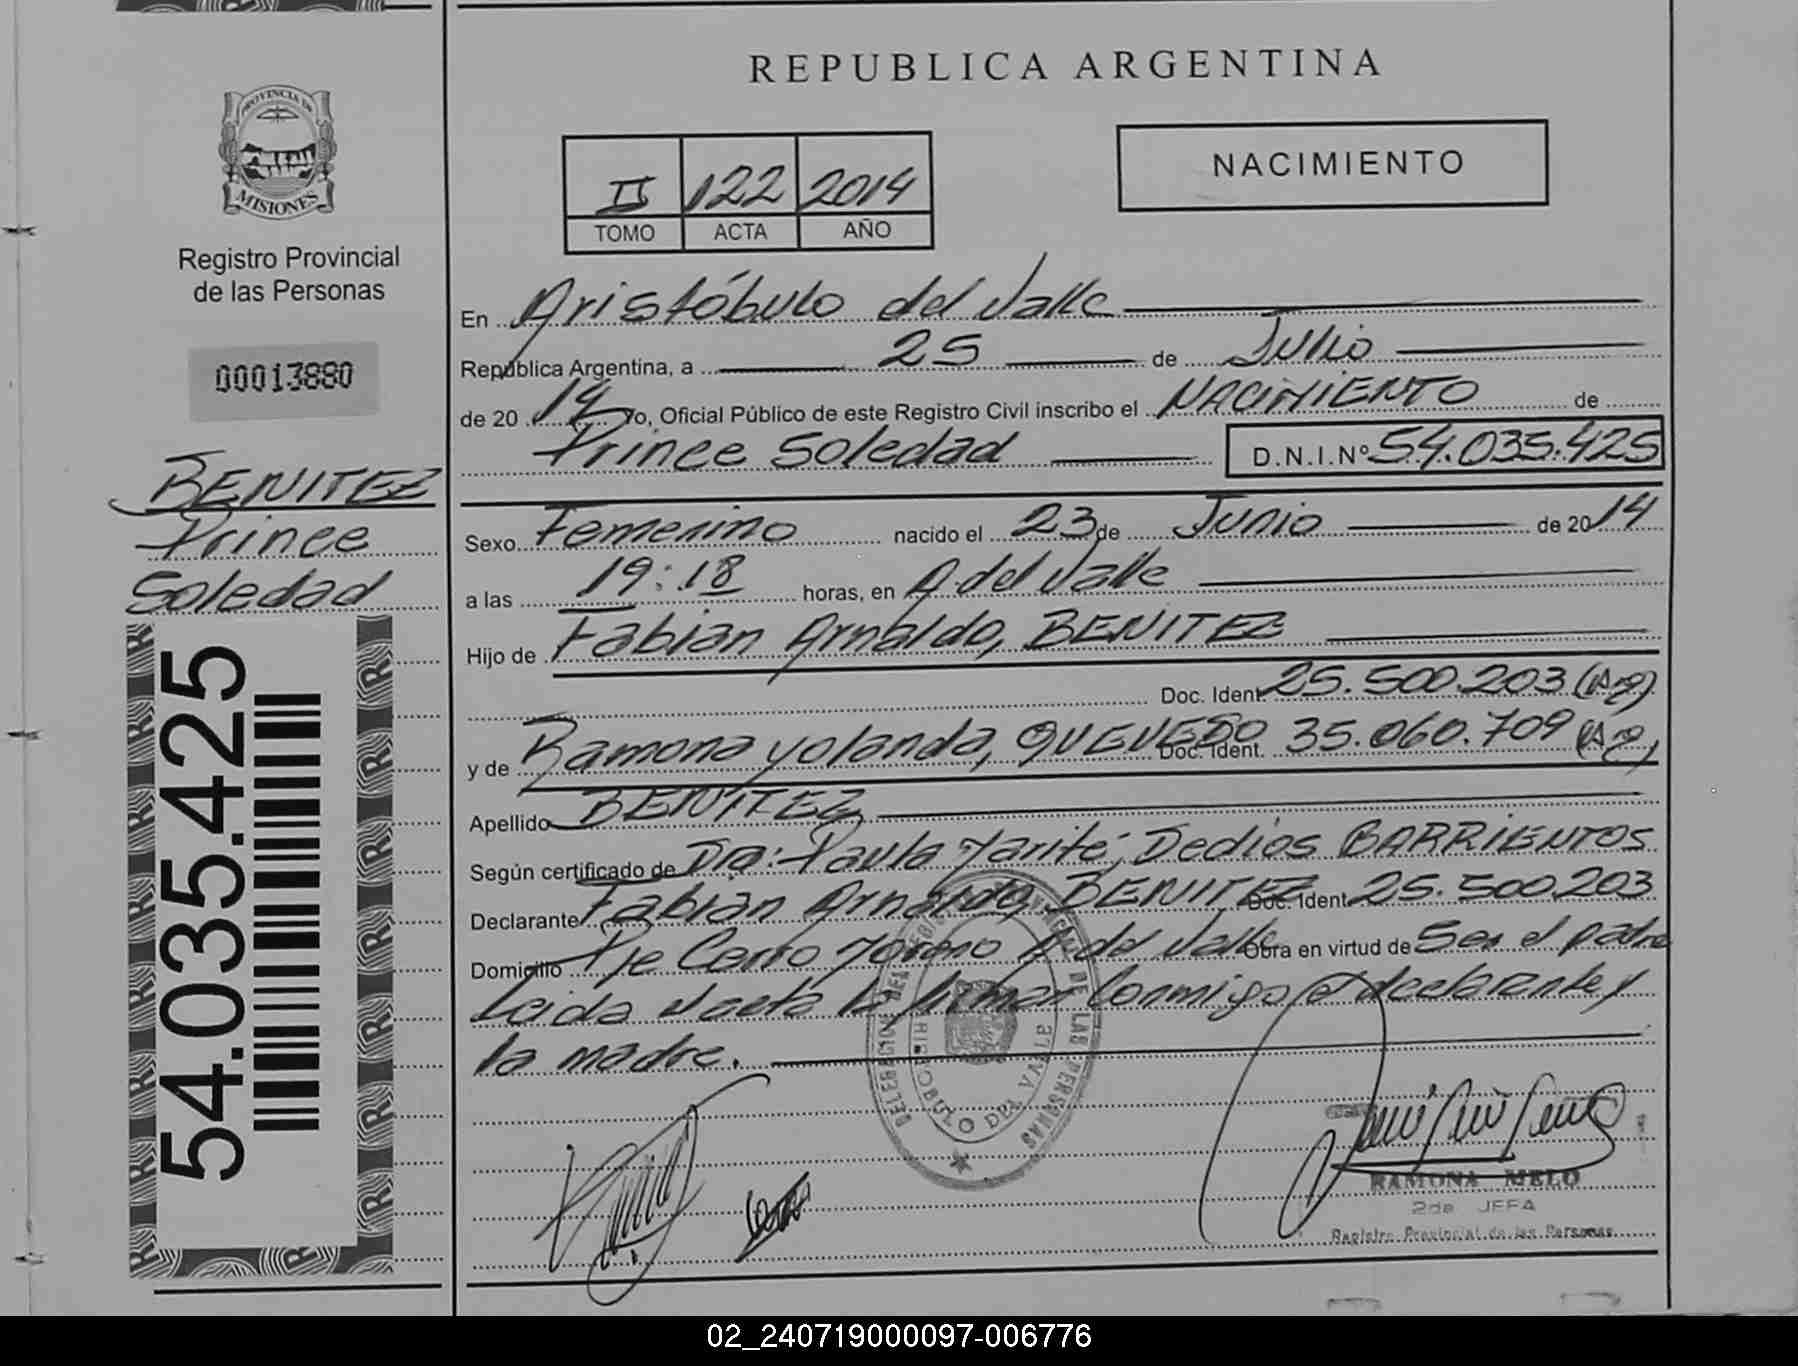 REPUBLICA ARGENTINA
PROVINCIA DE
MISIONES
Registro Provincial
de las Personas
00013880
BENITEZ
Prince
Soledad
54.035.425
NACIMIENTO
II 122 2014
TOMO ACTA AÑO
En Aristóbulo del Valle
República Argentina, a 25 de Julio
de 20 14 Yo, Oficial Público de este Registro Civil inscribo el NACIMIENTO de
Prince Soledad D.N.I.Nº 54.035.425
Sexo Femenino nacido el 23 de Junio de 20 14
a las 19:18 horas, en A. del Valle
Hijo de Fabian Arnaldo, BENITEZ
Doc. Ident. 25.500.203 (Arg)
y de Ramona Yolanda, QUEVEDO Doc. Ident. 35.060.709 (Arg)
Apellido BENITEZ
Según certificado de Dra: Paula Dedios BARRIENTOS
Declarante Fabian Arnaldo, BENITEZ Doc. Ident. 25.500.203
Domicilio Pje Cerro Moreno A. del Valle Obra en virtud de Ser el padre
Leida el acta la firman conmigo el declarante y
la madre.
DE LAS PERSONAS
DEL VALLE
RAMONA MELO
2da JEFA
Registro Provincial de las Personas
02_240719000097-006776